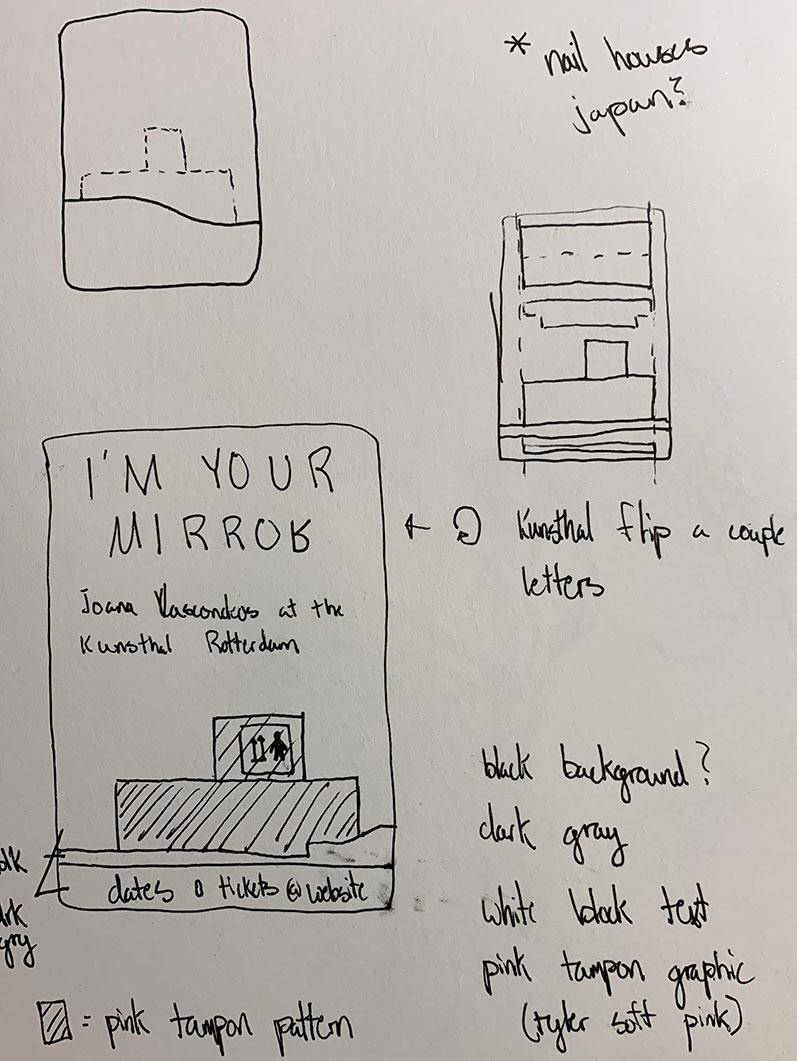 * nail houses
japan?
I'M YOUR
MIRROR
Joana Vasconcelos at the
Kunsthal Rotterdam
← Kunsthal flip a couple
letters
black background?
dark gray
white block text
pink tampon graphic
(tyler soft pink)
dates tickets @ website
= pink tampon pattern